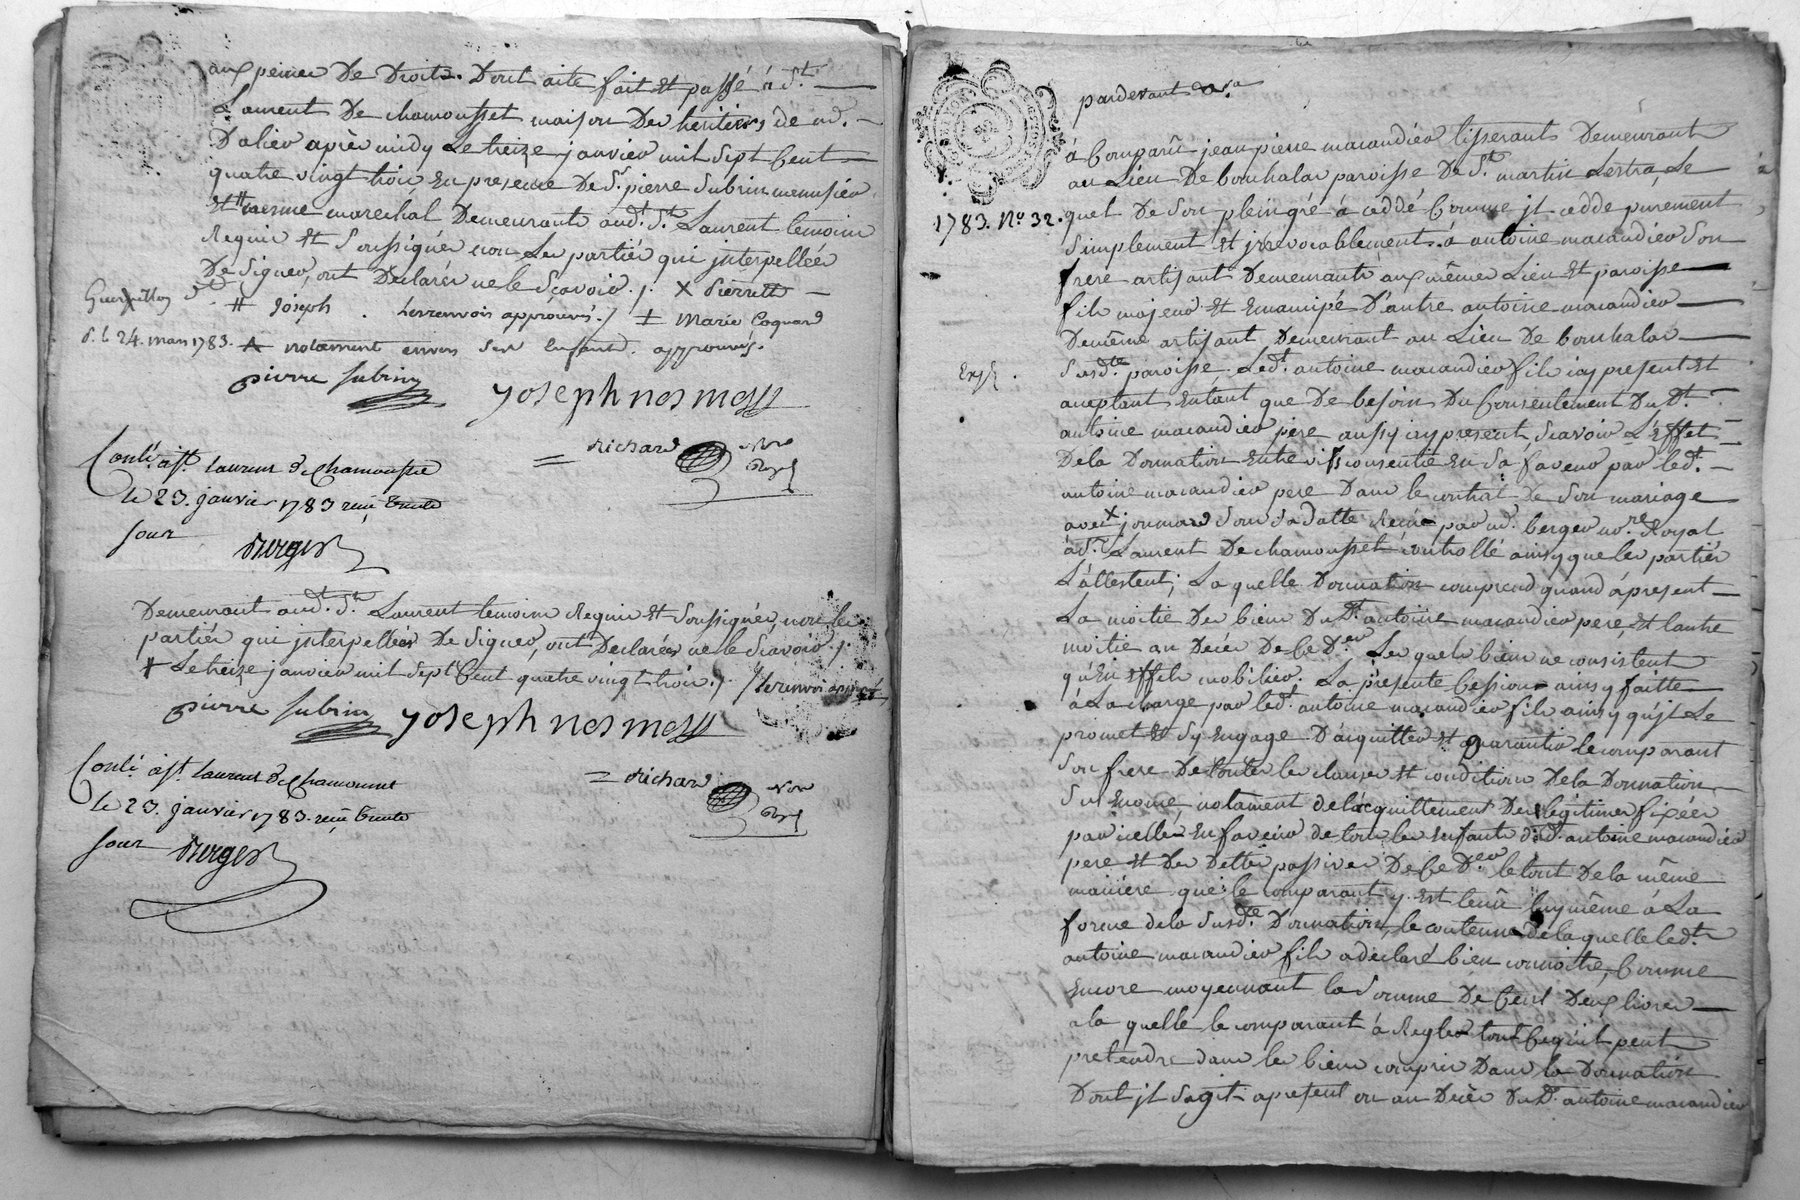 aux peines De Droits. Dont acte fait et passé à St.
Laurent De chamousset maison Des heritiers de md.
Dalier après midy Le treize janvier mil sept Cent
quatre vingt trois en presence De Sr. pierre Subrin menuisier
et # nesme marechal Demeurants audt. St. Laurent temoins
Requis et soussignés non Les parties qui interpellées
De signer, ont Declarés ne le Scavoir ./. X pierrette
# joseph . les renvois approuvés ./ ± Marie Coquard
d. le 24. mars 1783. A notament envers ses Enfants. approuvés.
pierre subrin
yoseph nesmess
richard
Nore
Royl
Conlé. à St. Laurent de Chamousset
le 23. janvier 1783 reçu trente
sous
Berger
Demeurant audt. St. Laurent temoins Requis et soussignés, non les
parties qui interpellées De signer, ont Declarés ne le Scavoir ./.
# Le treize janvier mil sept Cent quatre vingt trois ./. / le renvoi approuvé
pierre subrin yoseph nesmess
richard
Nore
Royl
Conlé. à St. Laurent de Chamousset
le 23. janvier 1783. reçu trente
sous Berger
pardevant
à Comparû jean pierre marandier tisserant Demeurant
au Lieu De bouhalar paroisse De St. martin Lestra, Le
1783. No. 32.
quel De son plein gré à ceddé Comme jl cedde purement
simplement et jrrevocablement à antoine marandier son
frere artisant Demeurant aux même Lieu et paroisse
fils majeur et Emancipé D'autre antoine marandier
Demême artisant Demeurant au Lieu De bouhalar
Exp.
susdte paroisse, Ledt. antoine marandier fils icy present et
aceptant Entant que De besoin Du Consentement Dudt.
antoine marandier pere aussy icy present, Scavoir L'Effet
Dela Donnation Entre vifs consentie En sa faveur par ledt.
antoine marandier pere Dans le contrat de son mariage
avec X jonmard sous sa datte Reçu par md. berger nore. Royal
à St. Laurent De chamousset controllé ainsy que les parties
L'attestent; La quelle Donnation comprend quand à present
La moitié Des biens Dudt. antoine marandier pere, et lautre
moitié au Decès De Ce Der. Les quels biens ne consistent
qu'En Effets mobiliers. La presente Cession ainsy faitte
à La charge par ledt. antoine marandier fils ainsy qu'jl Le
promet et s'y Engage D'acquitter et Garantir le comparant
son frere De toutes les clauses et conditions Dela Donnation
sus Enoncé, notament de l'acquittement Des légitimes fixées
par icelles En faveur de tous les Enfants dudt. antoine marandier
pere et Des Dettes passives De Ce Der. le tout De la même
maniere que le comparant y est tenû luy même à La
forme dela susdte. Donnation, le contenu de laquelle ledt.
antoine marandier fils a declaré bien connoitre, Comme
Encore moyennant la somme De Cent Deux livres
ala quelle le comparant à Reglé tout Ce qu'il peut
pretendre dans les biens compris Dans la Donnation
Dont jl sagit apresent ou au Decès Dudt. antoine marandier